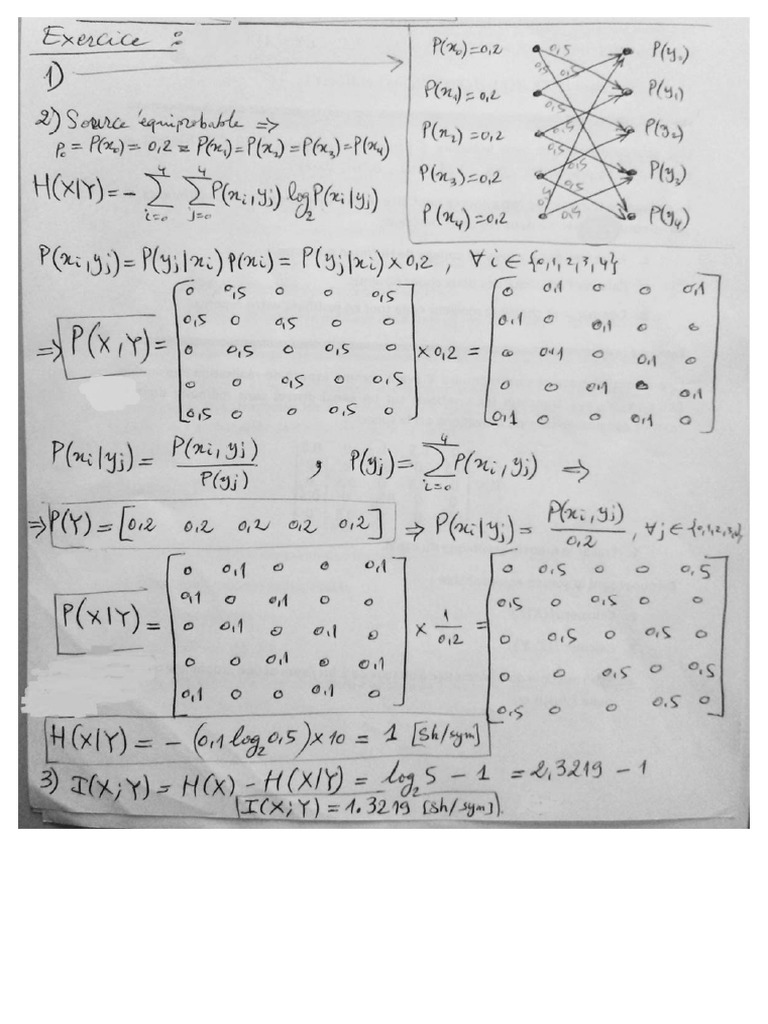 Exercice :
1)
P(x₀)=0,2 0,5 P(y₀)
0,5 0,5
P(x₁)=0,2 P(y₁)
P(x₂)=0,2 0,5 P(y₂)
0,5
P(x₃)=0,2 0,5 P(y₃)
P(x₄)=0,2 0,5 P(y₄)
2) Source équiprobable =>
P₀ = P(x₀) = 0,2 = P(x₁) = P(x₂) = P(x₃) = P(x₄)
H(X|Y) = - ∑_{i=0}^{4} ∑_{j=0}^{4} P(xi,yj) log₂ P(xi|yj)
P(xi,yj) = P(yj|xi) P(xi) = P(yj|xi) × 0,2 , ∀ i ∈ {0,1,2,3,4}
=> P(X,Y) = [0 0,5 0 0 0,5
0,5 0 0,5 0 0
0 0,5 0 0,5 0
0 0 0,5 0 0,5
0,5 0 0 0,5 0] × 0,2 = [0 0,1 0 0 0,1
0,1 0 0,1 0 0
0 0,1 0 0,1 0
0 0 0,1 0 0,1
0,1 0 0 0,1 0]
P(xi|yj) = P(xi,yj) / P(yj) , P(yj) = ∑_{i=0}^{4} P(xi,yj) =>
=> P(Y) = [0,2 0,2 0,2 0,2 0,2] => P(xi|yj) = P(xi,yj) / 0,2 , ∀ j ∈ {0,1,2,3,4}
P(X|Y) = [0 0,1 0 0 0,1
0,1 0 0,1 0 0
0 0,1 0 0,1 0
0 0 0,1 0 0,1
0,1 0 0 0,1 0] × 1/0,2 = [0 0,5 0 0 0,5
0,5 0 0,5 0 0
0 0,5 0 0,5 0
0 0 0,5 0 0,5
0,5 0 0 0,5 0]
H(X|Y) = - (0,1 log₂ 0,5) × 10 = 1 [Sh/sym]
3) I(X;Y) = H(X) - H(X|Y) = log₂ 5 - 1 = 2,3219 - 1
I(X;Y) = 1.3219 [Sh/sym].